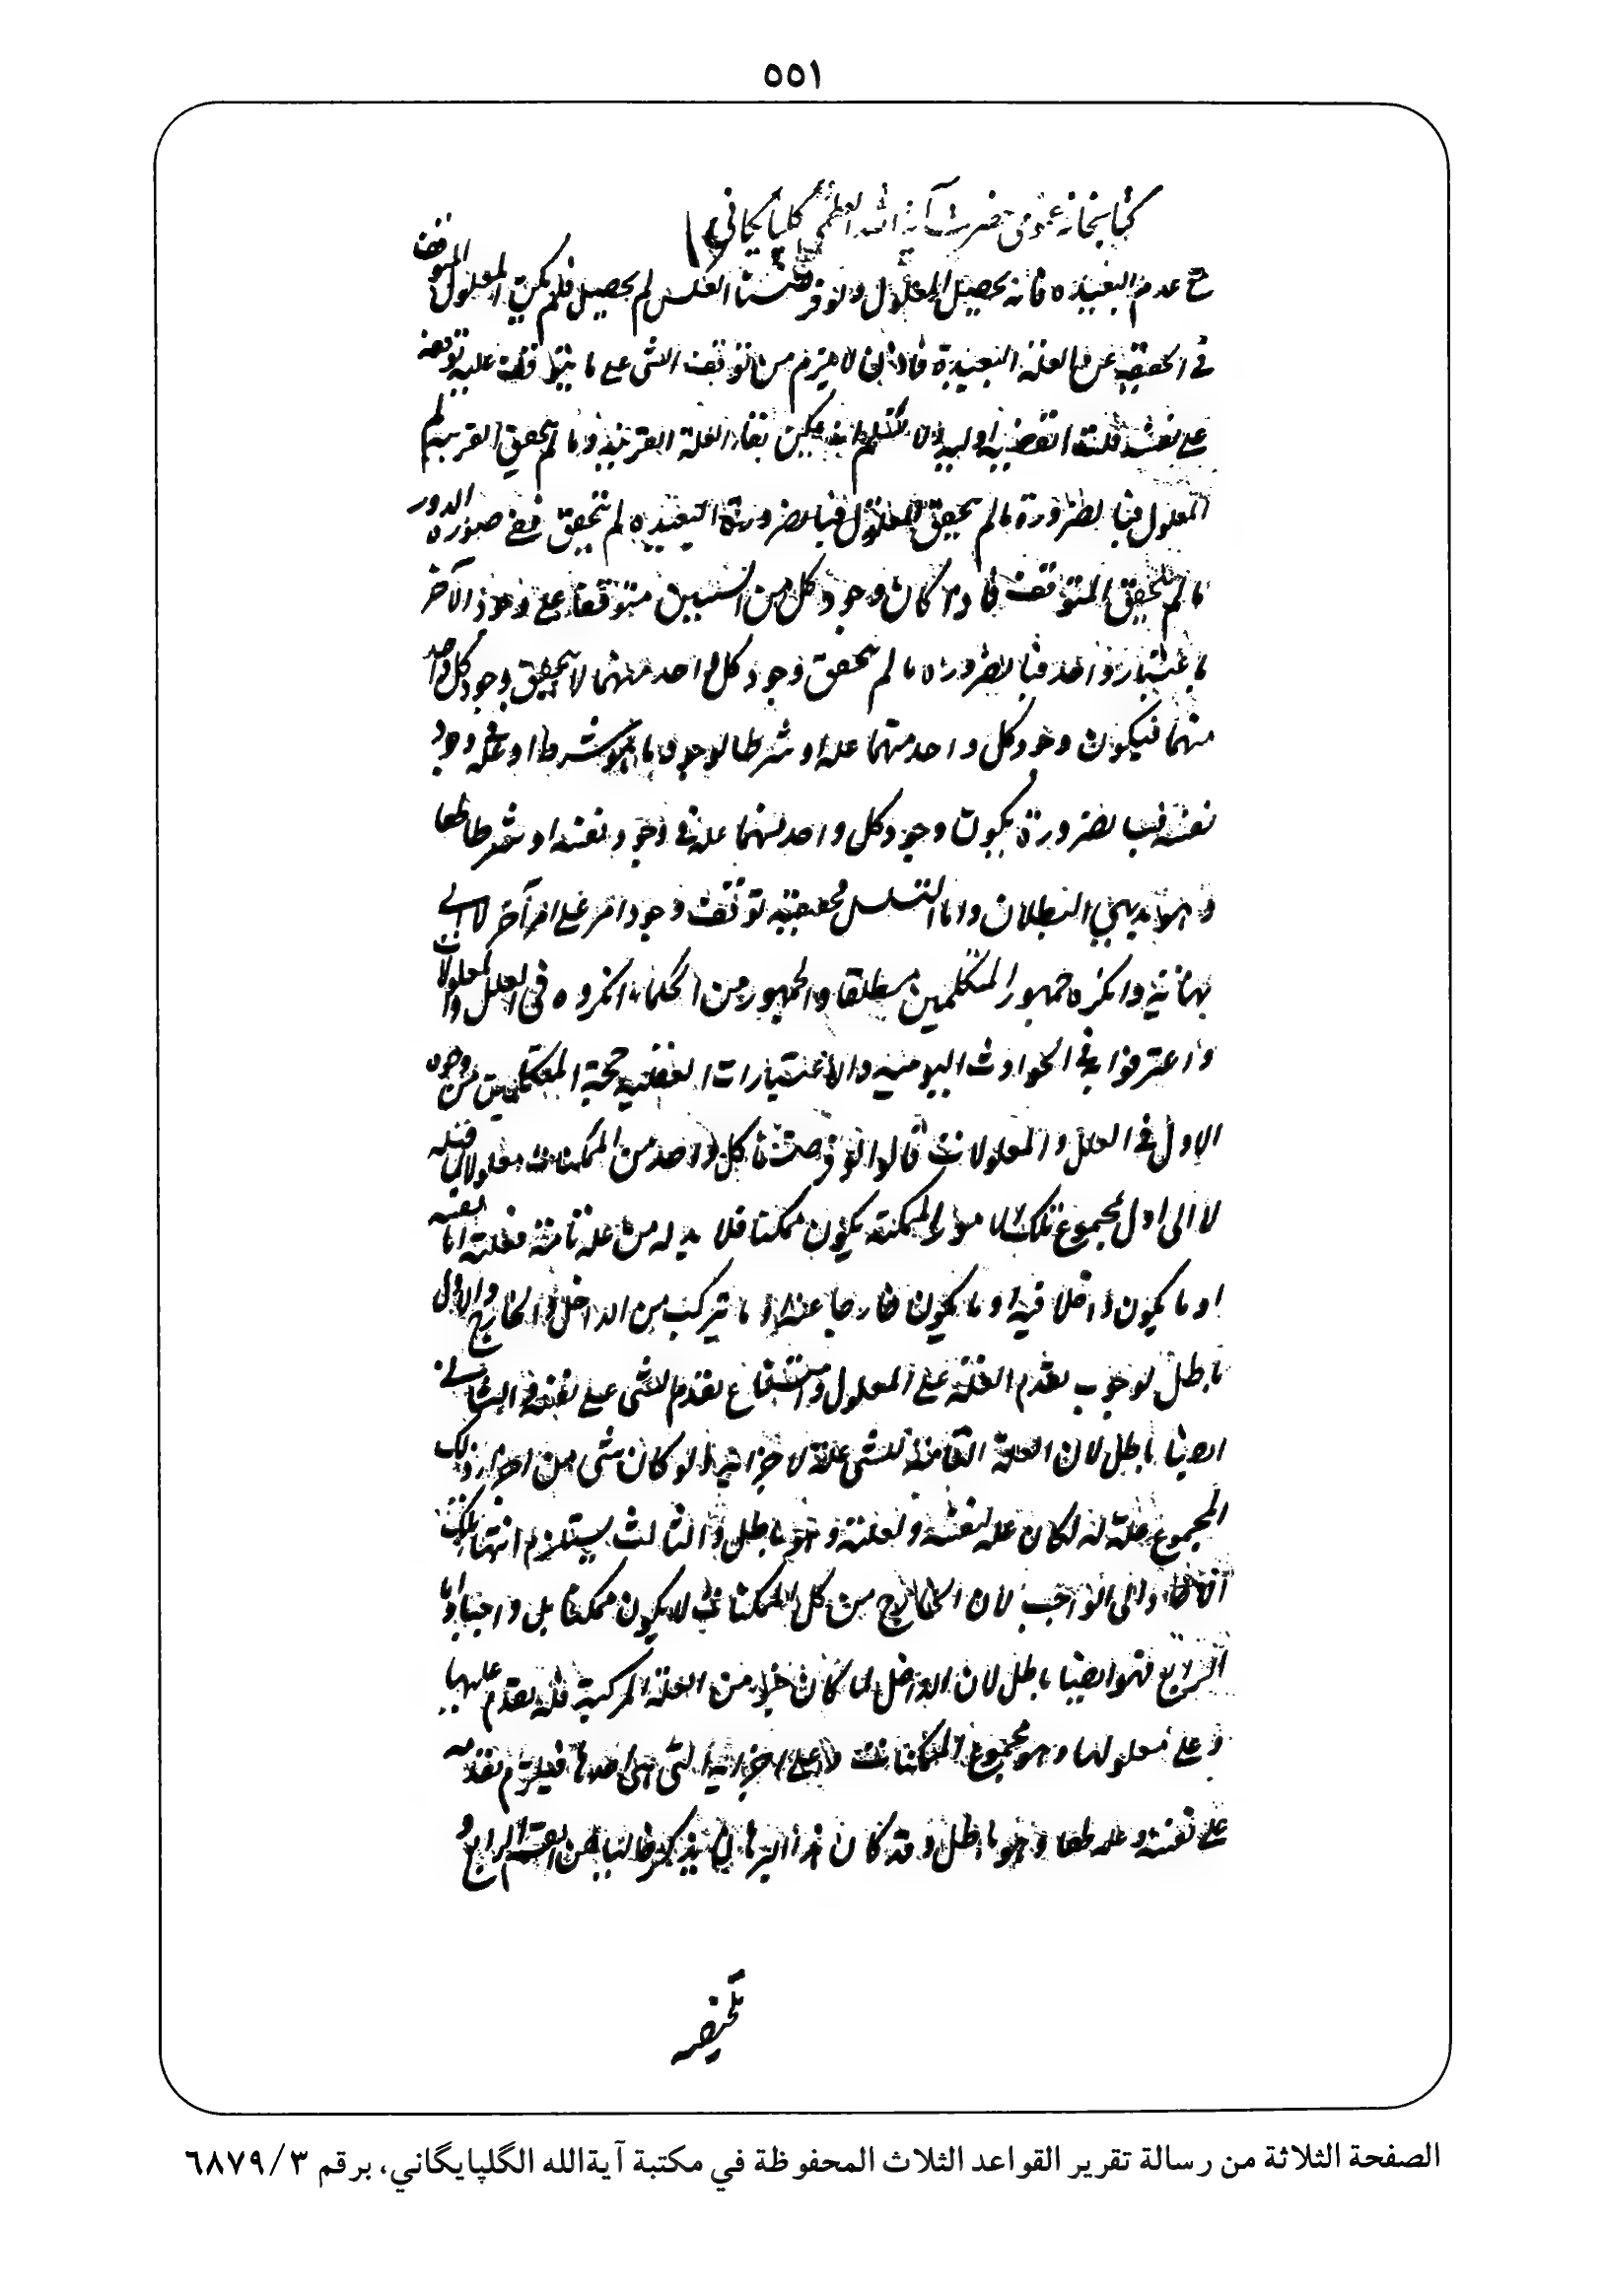 ٥٥١
كتابخانه عمومى حضرت آية الله العظمى گلپايگانى
ع عدم البعيده فانه يحصل المعلول ولو فرضنا العكس لم يحصل فلم يكن المعلول المتوقف
فى الحقيقة على العلة البعيدة فاذن لا يلزم من توقف الشى على ما يتوقف عليه توقفه
على نفسه قلت القضية اوليه لا نسلم يمكن بقاء العلة القريبه وما لم يتحقق القريبه لم
المعلول فبالضرورة ما لم يتحقق المعلول فبالضرورة البعيده لم تتحقق ففى صورة الدور
ما لم يتحقق المتوقف فاذا كان وجود كل من الشيئين متوقفا على وجود الآخر
باعتبار واحد فبالضروره ما لم يتحقق وجود كل واحد منهما لا يتحقق وجود كل واحد
منهما فيكون وجود كل واحد منهما علة او شرطا لوجود ما هو شرط او علة وجود
نفسه فبالضرورة يكون وجود كل واحد منهما علة فى وجود نفسه او شرطا لها
وهو بديهي البطلان واما التسلسل فحقيقته توقف وجود امر على امر آخر لا الى
نهاية وانكره جمهور المتكلمين مطلقا والجمهور من الحكماء انكروه فى العلل والمعلولات
واعترفوا به فى الحوادث اليومية والاعتبارات العقلية حجة المتكلمين من وجوه
الاول فى العلل والمعلولات قالوا لو فرضنا كل واحد من الممكنات معلولا لما قبله
لا الى اول لمجموع تلك الامور الممكنة يكون ممكنا فلا بد له من علة تامة فعلته اما نفسه
او ما يكون داخلا فيه او ما يكون خارجا عنه او ما يتركب من الداخل والخارج والاول
باطل لوجوب تقدم العلة على المعلول وامتناع تقدم الشى على نفسه والثانى
ايضا باطل لان العلة التامة للشى علة لاجزائه فلو كان شى من اجزاء ذلك
المجموع علة له لكان علة لنفسه ولعلته وهو باطل والثالث يستلزم انتهاء تلك
الآحاد الى الواجب لان الخارج من كل الممكنات لا يكون ممكنا بل واجبا واما
الرابع فهو ايضا باطل لان الداخل لما كان جزء من العلة المركبة فله تقدم عليها
وعلى معلولها وهو مجموع الممكنات وعلى اجزائه التى هى احدها فيلزم تقدمه
على نفسه وعلله وهو باطل وقد كان هذا البرهان يذكر خاليا عن القسم الرابع و
تلخيصه
الصفحة الثلاثة من رسالة تقرير القواعد الثلاث المحفوظة في مكتبة آيةالله الگلپايگاني، برقم ٦٨٧٩/٣